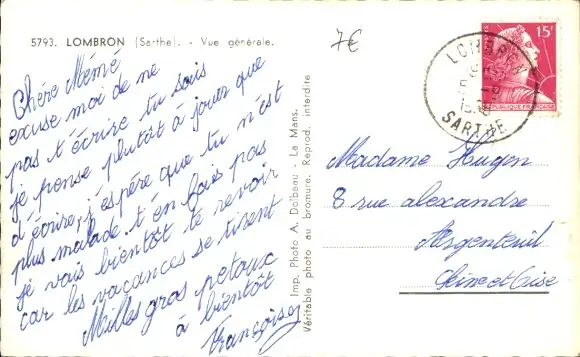 5793. LOMBRON (Sarthe). - Vue générale.
7€
Chère Mémé
excuse moi de ne
pas t écrire tu sais
je pense plutôt à jouer que
d'écrire, j'espère que tu n'est
plus malade t'en fais pas
je vais bientôt te revoir
car les vacances se tirent
Milles gros petaux
à bientôt
Françoise
Imp. Photo A. Dolbeau - Le Mans.
Véritable photo au bromure. Reprod. interdite
15F
POSTES
REPUBLIQUE FRANÇAISE
LOMBRON
SARTHE
Madame Hugon
8 rue alexandre
Argenteuil
Seine et Oise